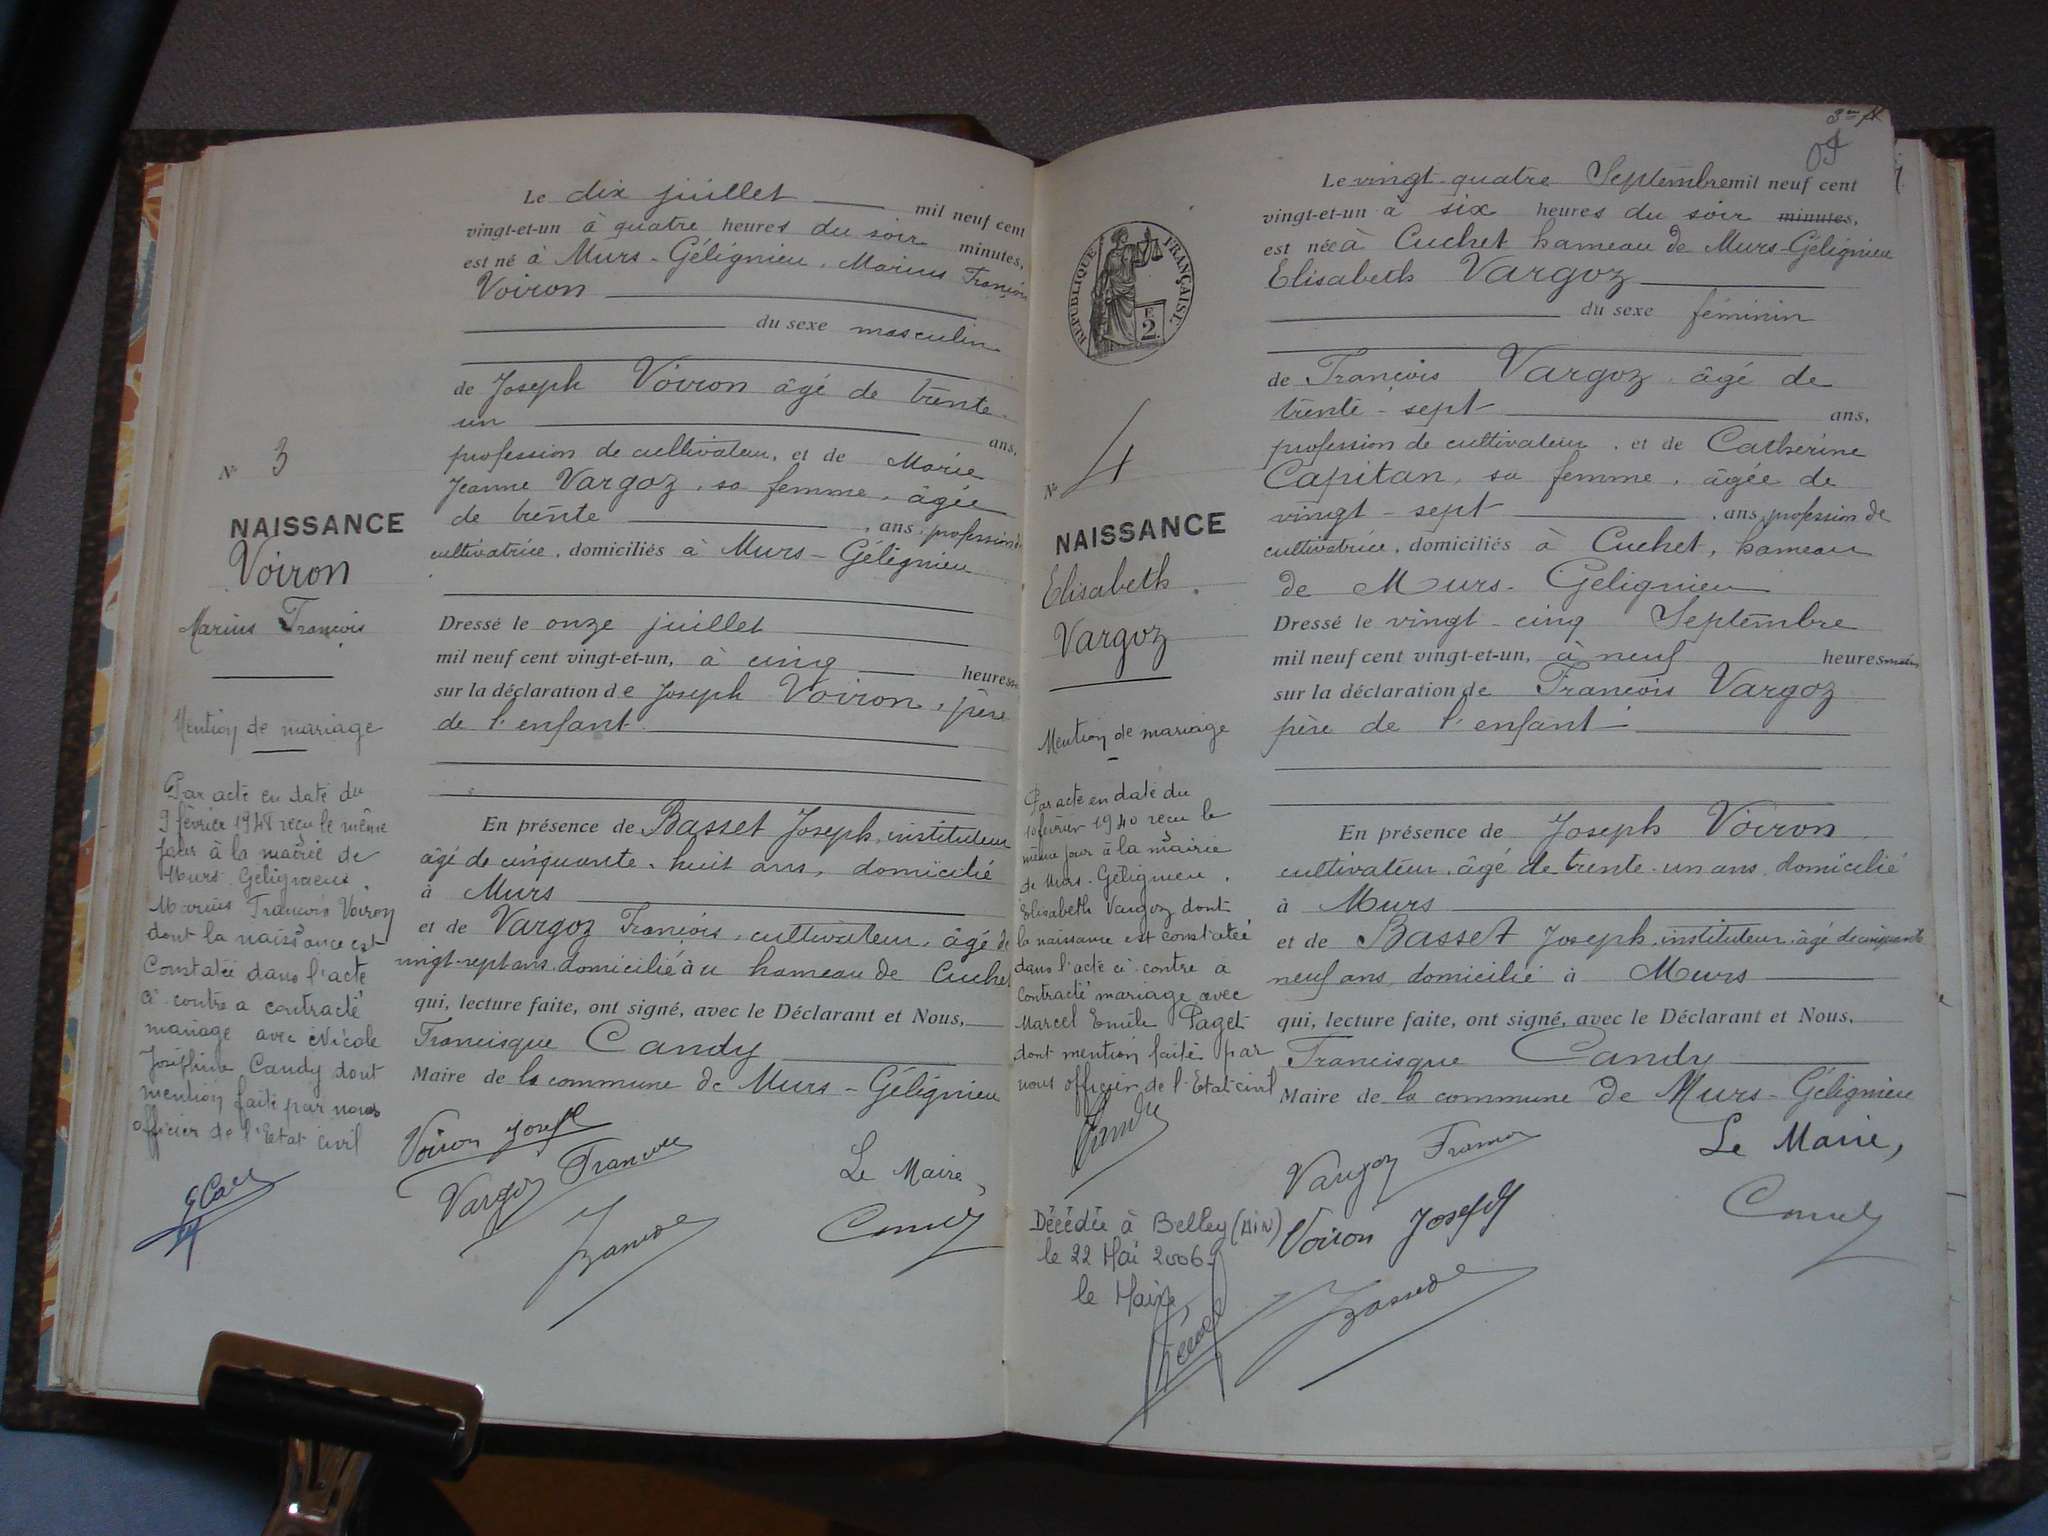 Le dix juillet mil neuf cent
vingt-et-un à quatre heures du soir minutes,
est né à Murs-Gélignieu, Marius François
Voiron
du sexe masculin
de Joseph Voiron âgé de trente-
un ans,
profession de cultivateur, et de Marie
Jeanne Vargoz, sa femme, âgée
de trente, ans, profession de
cultivatrice, domiciliés à Murs-Gélignieu
Dressé le onze juillet
mil neuf cent vingt-et-un, à cinq heures
sur la déclaration de Joseph Voiron, père
de l'enfant
En présence de Basset Joseph, instituteur
âgé de cinquante-huit ans, domicilié
à Murs
et de Vargoz François, cultivateur, âgé de
vingt-sept ans, domicilié au hameau de Cuchet
qui, lecture faite, ont signé, avec le Déclarant et Nous,
Francisque Candy
Maire de la commune de Murs-Gélignieu
Voiron Joseph
Vargoz François
Le Maire,
Candy
N° 3
NAISSANCE
Voiron
Marius François
Mention de mariage
Par acte en date du
9 février 1948 reçu le même
jour à la mairie de
Murs-Gélignieu
Marius François Voiron
dont la naissance est
Constatée dans l'acte
ci-contre a contracté
mariage avec Nicole
Joséphine Candy dont
mention faite par nous
officier de l'Etat civil
3me
Le vingt-quatre Septembre mil neuf cent
vingt-et-un à six heures du soir minutes,
est née à Cuchet hameau de Murs-Gélignieu
Elisabeth Vargoz
du sexe féminin
de François Vargoz, âgé de
trente-sept ans,
profession de cultivateur, et de Catherine
Capitan, sa femme, âgée de
vingt-sept, ans, profession de
cultivatrice, domiciliés à Cuchet, hameau
de Murs-Gélignieu
Dressé le vingt-cinq Septembre
mil neuf cent vingt-et-un, à neuf heures matin
sur la déclaration de François Vargoz
père de l'enfant
En présence de Joseph Voiron
cultivateur, âgé de trente-un ans, domicilié
à Murs
et de Basset Joseph, instituteur, âgé de cinquante
neuf ans, domicilié à Murs
qui, lecture faite, ont signé, avec le Déclarant et Nous,
Francisque Candy
Maire de la commune de Murs-Gélignieu
Vargoz François
Le Maire,
Voiron Joseph
Candy
REPUBLIQUE FRANÇAISE
E
2
N° 4
NAISSANCE
Elisabeth
Vargoz
Mention de mariage
Par acte en date du
10 février 1940 reçu le
même jour à la mairie
de Murs-Gélignieu,
Elisabeth Vargoz dont
la naissance est constatée
dans l'acte ci-contre a
Contracté mariage avec
Marcel Emile Paget
dont mention faite par
nous officier de l'Etat civil
Décédée à Belley (AIN)
le 22 Mai 2006.
le Maire,